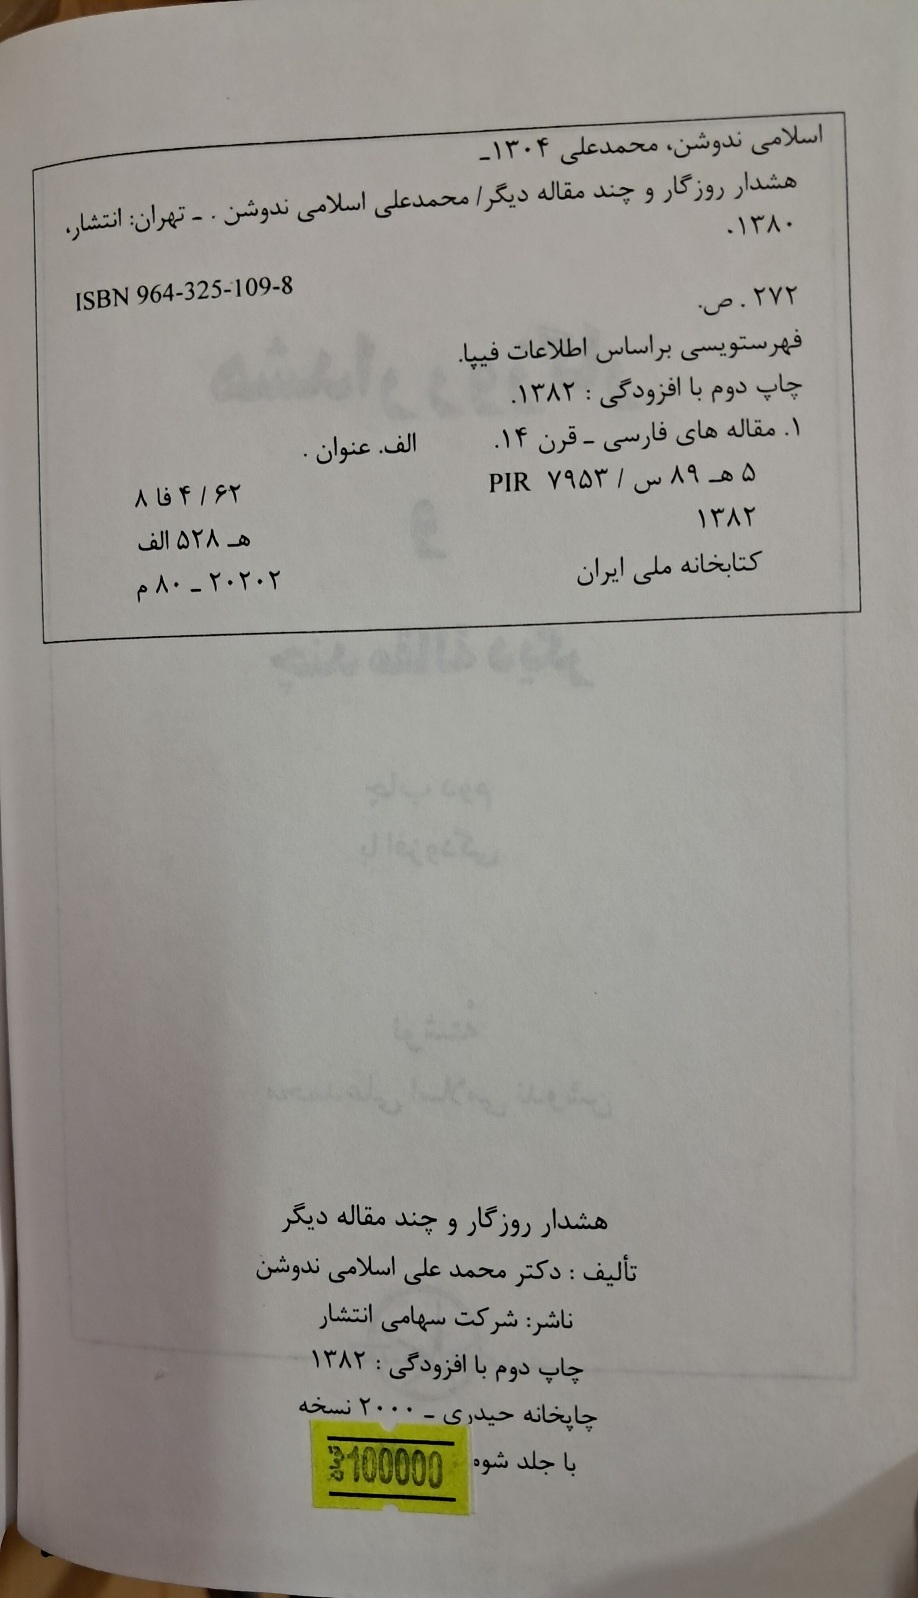 اسلامی ندوشن، محمدعلی ۱۳۰۴ـ
هشدار روزگار و چند مقاله دیگر/ محمدعلی اسلامی ندوشن . ـ تهران: انتشار،
۱۳۸۰.
ISBN 964-325-109-8
۲۷۲ . ص.
فهرستویسی براساس اطلاعات فیپا.
چاپ دوم با افزودگی : ۱۳۸۲.
۱. مقاله های فارسی ـ قرن ۱۴. الف. عنوان .
۵ هـ ۸۹ س / ۷۹۵۳ PIR ۶۲ / ۴ فا ۸
۱۳۸۲ هـ ۵۲۸ الف
کتابخانه ملی ایران ۲۰۲۰۲ ـ ۸۰ م
هشدار روزگار و چند مقاله دیگر
تألیف : دکتر محمد علی اسلامی ندوشن
ناشر: شرکت سهامی انتشار
چاپ دوم با افزودگی : ۱۳۸۲
چاپخانه حیدری ـ ۲۰۰۰ نسخه
با جلد
100000 تومان